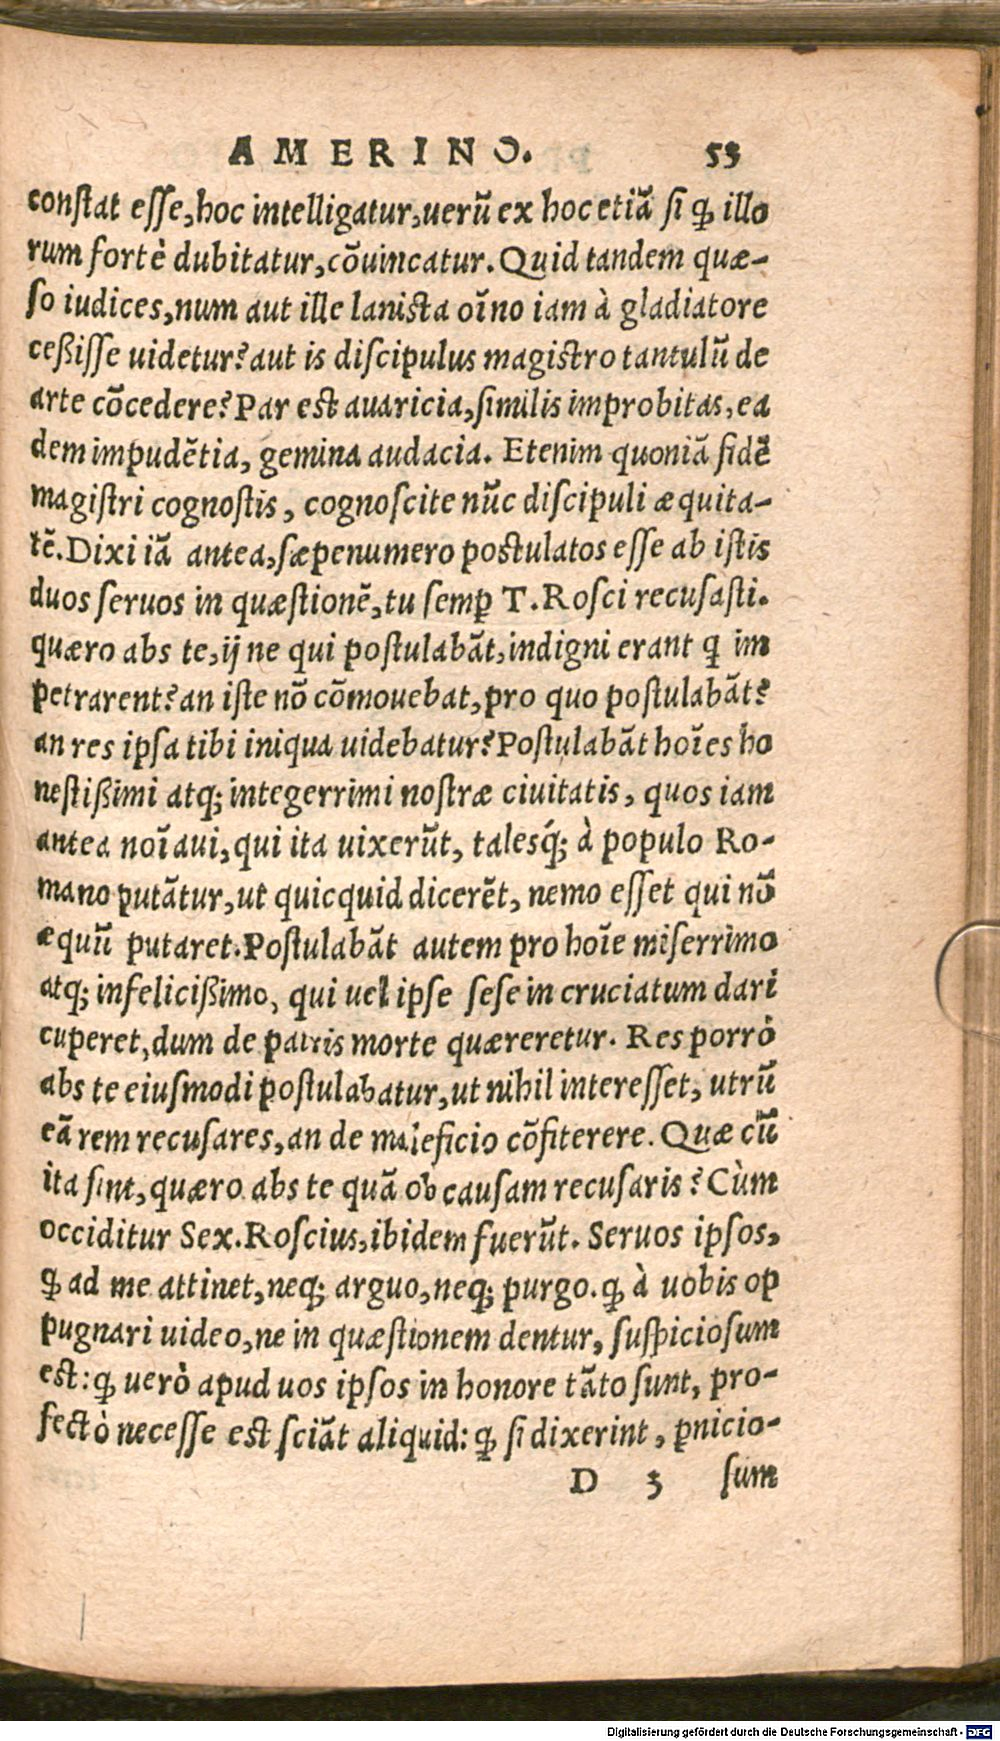 AMERINO. 53
constat esse, hoc intelligatur, uerũ ex hoc etiã si ꝙ illo
rum fortè dubitatur, cõuincatur. Quid tandem quæ-
so iudices, num aut ille lanista oĩno iam à gladiatore
ceßisse uidetur? aut is discipulus magistro tantulũ de
arte cõcedere? Par est auaricia, similis improbitas, ea
dem impudẽtia, gemina audacia. Etenim quoniã fidẽ
magistri cognostis, cognoscite nũc discipuli æquita-
tẽ. Dixi iã antea, sæpenumero postulatos esse ab istis
duos seruos in quæstionẽ, tu semꝑ T. Rosci recusasti.
quæro abs te, ij ne qui postulabãt, indigni erant ꝙ im
petrarent? an iste nõ cõmouebat, pro quo postulabãt?
an res ipsa tibi iniqua uidebatur? Postulabãt hoĩes ho
nestißimi atq; integerrimi nostræ ciuitatis, quos iam
antea noĩaui, qui ita uixerũt, talesq́; à populo Ro-
mano putãtur, ut quicquid dicerẽt, nemo esset qui nõ
æquũ putaret. Postulabãt autem pro hoĩe miserrimo
atq; infelicißimo, qui uel ipse sese in cruciatum dari
cuperet, dum de patris morte quæreretur. Res porrò
abs te eiusmodi postulabatur, ut nihil interesset, utrũ
eã rem recusares, an de maleficio cõfiterere. Quæ cũ
ita sint, quæro abs te quã ob causam recusaris? Cùm
occiditur Sex. Roscius, ibidem fuerũt. Seruos ipsos,
ꝙ ad me attinet, neq; arguo, neq; purgo. ꝙ à uobis op
pugnari uideo, ne in quæstionem dentur, suspiciosum
est: ꝙ uerò apud uos ipsos in honore tãto sunt, pro-
fectò necesse est sciãt aliquid: ꝙ si dixerint, ꝑnicio-
D 3 sum
Digitalisierung gefördert durch die Deutsche Forschungsgemeinschaft - DFG